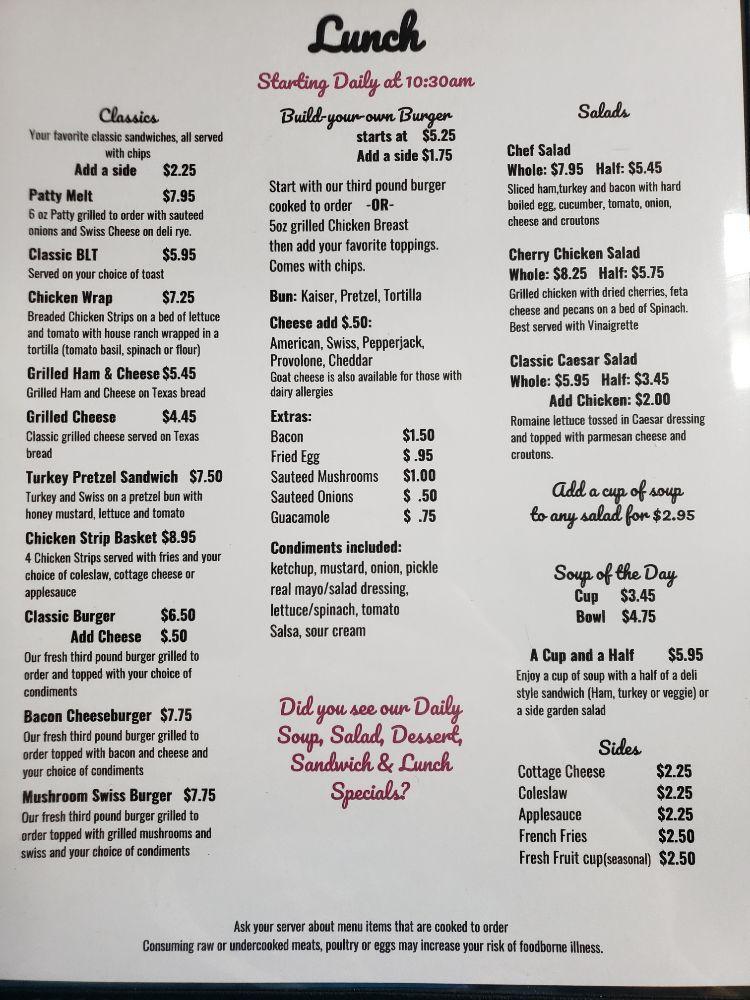 Lunch
Starting Daily at 10:30am
Classics
Your favorite classic sandwiches, all served
with chips
Add a side $2.25
Patty Melt $7.95
6 oz Patty grilled to order with sauteed
onions and Swiss Cheese on deli rye.
Classic BLT $5.95
Served on your choice of toast
Chicken Wrap $7.25
Breaded Chicken Strips on a bed of lettuce
and tomato with house ranch wrapped in a
tortilla (tomato basil, spinach or flour)
Grilled Ham & Cheese $5.45
Grilled Ham and Cheese on Texas bread
Grilled Cheese $4.45
Classic grilled cheese served on Texas
bread
Turkey Pretzel Sandwich $7.50
Turkey and Swiss on a pretzel bun with
honey mustard, lettuce and tomato
Chicken Strip Basket $8.95
4 Chicken Strips served with fries and your
choice of coleslaw, cottage cheese or
applesauce
Classic Burger $6.50
Add Cheese $.50
Our fresh third pound burger grilled to
order and topped with your choice of
condiments
Bacon Cheeseburger $7.75
Our fresh third pound burger grilled to
order topped with bacon and cheese and
your choice of condiments
Mushroom Swiss Burger $7.75
Our fresh third pound burger grilled to
order topped with grilled mushrooms and
swiss and your choice of condiments
Build-your-own Burger
starts at $5.25
Add a side $1.75
Start with our third pound burger
cooked to order -OR-
5oz grilled Chicken Breast
then add your favorite toppings.
Comes with chips.
Bun: Kaiser, Pretzel, Tortilla
Cheese add $.50:
American, Swiss, Pepperjack,
Provolone, Cheddar
Goat cheese is also available for those with
dairy allergies
Extras:
Bacon $1.50
Fried Egg $ .95
Sauteed Mushrooms $1.00
Sauteed Onions $ .50
Guacamole $ .75
Condiments included:
ketchup, mustard, onion, pickle
real mayo/salad dressing,
lettuce/spinach, tomato
Salsa, sour cream
Did you see our Daily
Soup, Salad, Dessert,
Sandwich & Lunch
Specials?
Salads
Chef Salad
Whole: $7.95 Half: $5.45
Sliced ham,turkey and bacon with hard
boiled egg, cucumber, tomato, onion,
cheese and croutons
Cherry Chicken Salad
Whole: $8.25 Half: $5.75
Grilled chicken with dried cherries, feta
cheese and pecans on a bed of Spinach.
Best served with Vinaigrette
Classic Caesar Salad
Whole: $5.95 Half: $3.45
Add Chicken: $2.00
Romaine lettuce tossed in Caesar dressing
and topped with parmesan cheese and
croutons.
Add a cup of soup
to any salad for $2.95
Soup of the Day
Cup $3.45
Bowl $4.75
A Cup and a Half $5.95
Enjoy a cup of soup with a half of a deli
style sandwich (Ham, turkey or veggie) or
a side garden salad
Sides
Cottage Cheese $2.25
Coleslaw $2.25
Applesauce $2.25
French Fries $2.50
Fresh Fruit cup(seasonal) $2.50
Ask your server about menu items that are cooked to order
Consuming raw or undercooked meats, poultry or eggs may increase your risk of foodborne illness.